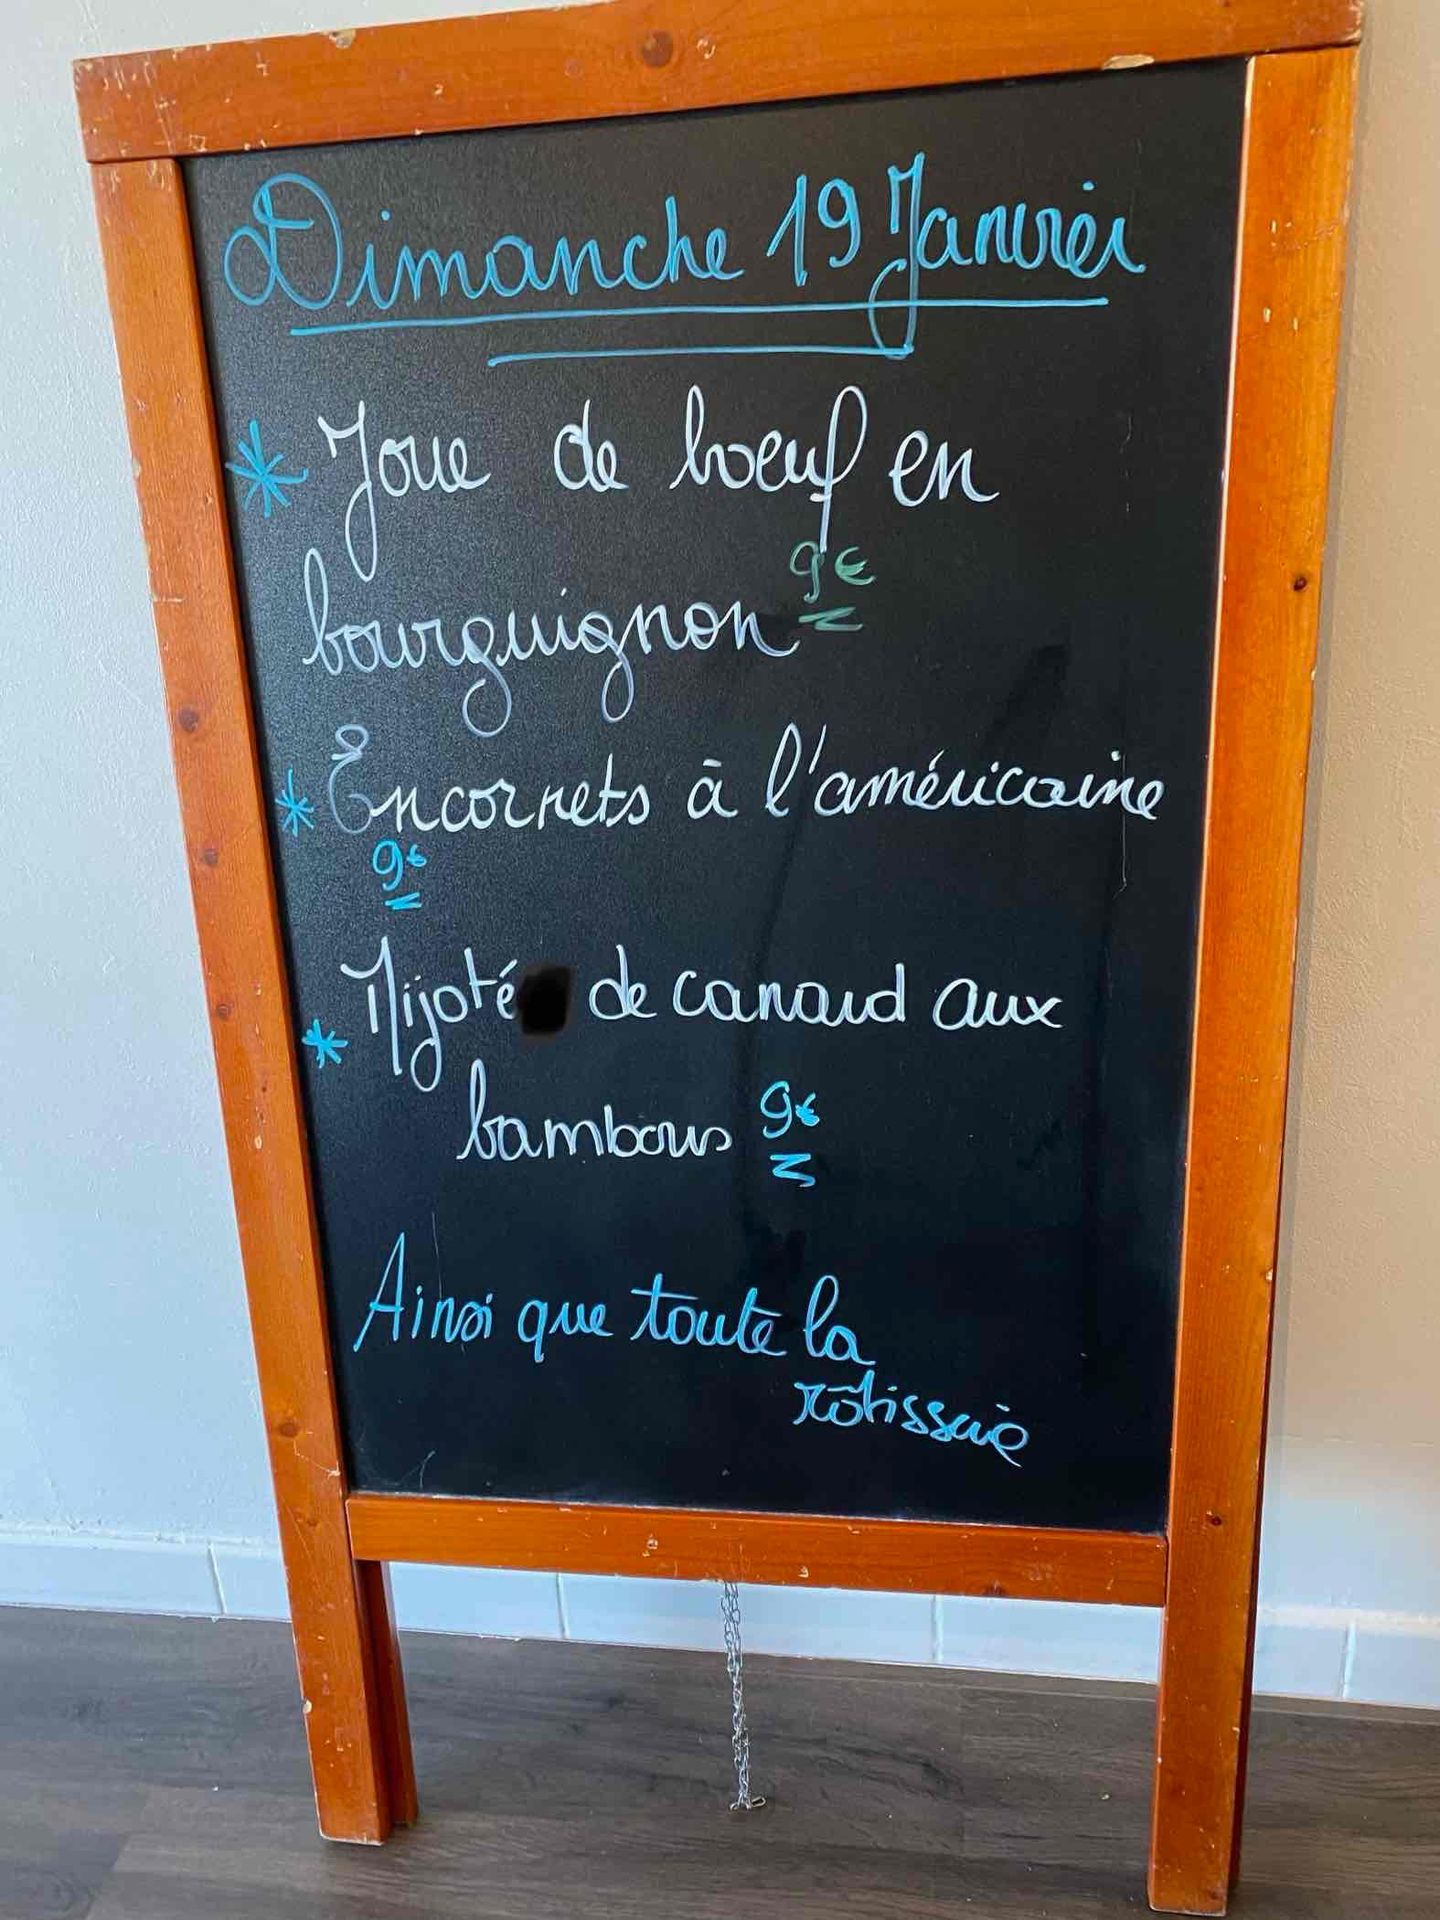 Dimanche 19 Janvier
* Joue de boeuf en
bourguignon 9€
* Encornets à l'américaine
9€
* Mijoté de canard aux
bambous 9€
Ainsi que toute la
rôtisserie